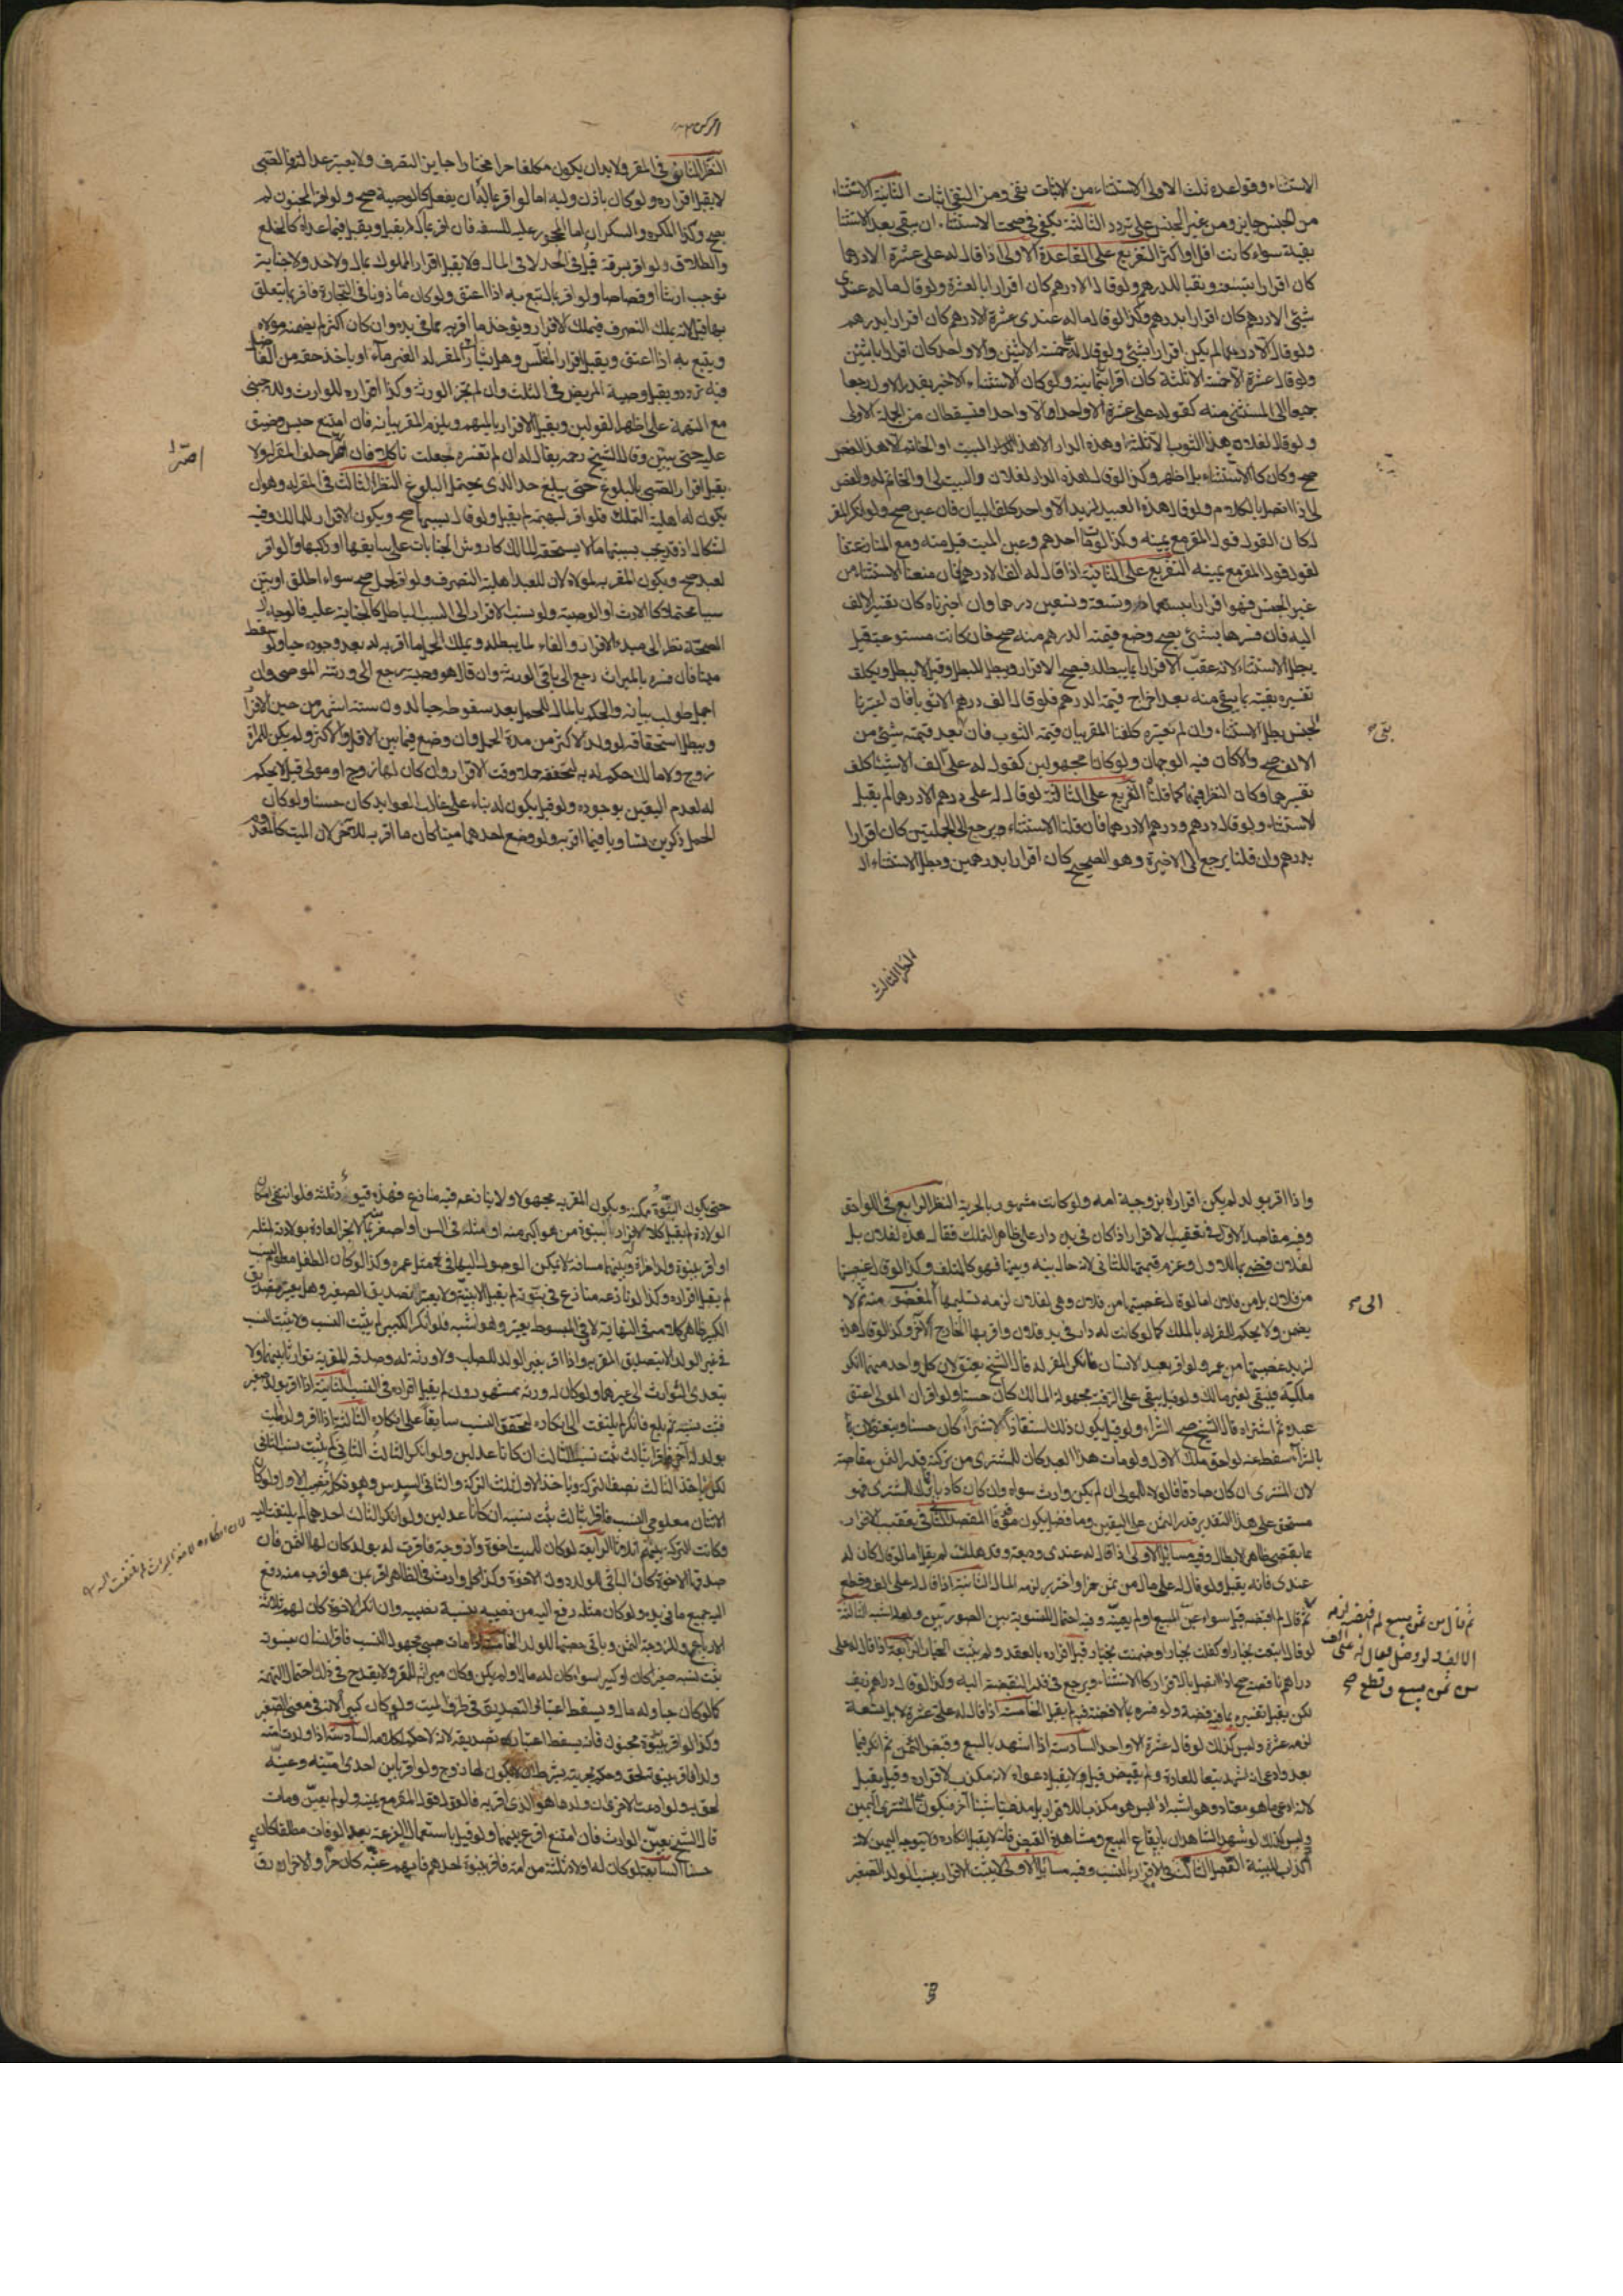 الاستثناء وقواعده ثلث الاولى الاستثناء من الاثبات نفى ومن النفى اثبات الثانية الاستثناء
من الجنس جايز ومن غير الجنس على تردد الثالثة يكفى فى صحة الاستثناء ان يبقى بعد الاستثنا
بقية سواء كانت اقل او اكثر التفريع على القاعدة الاولى اذا قال له على عشرة الا درهما
كان اقرارا بتسعة ونفيا للدرهم ولو قال الا درهم كان اقرارا بالعشرة ولو قال ما له عندى
شئ الا درهم كان اقرارا بدرهم وكذا لو قال ما له عندى عشرة الا درهم كان اقرارا بدرهم
ولو قال الا درهما لم يكن اقرارا بشئ ولو قال له خمسة الا اثنين والا واحد كان اقرارا باثنين
ولو قال عشرة الا خمسة الا ثلثة كان اقرارا بثمانية ولو كان الاستثناء الاخير بقدر الاول رجعا
جميعا الى المستثنى منه كقوله له على عشرة الا واحدا والا واحدا فيسقطان من الجملة الاولى
ولو قال لفلان هذا الثوب الا ثلثه او هذه الدار الا هذا البيت او الخاتم الا هذا الفص
صح وكان كالاستثناء بل اظهر وكذا لو قال هذه الدار لفلان والبيت لى او الخاتم له والفص
لى اذا اتصل الكلام ولو قال هذه العبيد لزيد الا واحد كلف البيان فان عين صح ولو انكر المقر له
كان القول قول المقر مع يمينه وكذا لو مات احدهم وعين الميت قبل منه ومع المنازعة فا
لقول قول المقر مع يمينه التفريع على الثانية اذا قال له الف الا درهم فان منعنا الاستثناء من
غير الجنس فهو اقرار بتسعماة وتسعة وتسعين درهما وان اجزناه كان تفسير الالف
اليه فان فسرها بشئ يصح وضع قيمة الدرهم منه صح فان كانت مستوعبة قيل
يبطل الاستثناء لانه عقب الاقرار بما يبطله فيصح الاقرار ويبطل المبطل وقيل لا يبطل ويكلف
تفسيره بقية يبقى منه بعد اخراج قيمة الدرهم فلو قال الف درهم الا ثوبا فان اعتبرنا
الجنس بطل الاستثناء وان لم نعتبره كلفنا المقر بيان قيمة الثوب فان بقى بعد قيمته شئ من
الالف صح والا كان فيه الوجهان ولو كانا مجهولين كقوله له على الف الا شيئا كلف
تفسيرهما وكان النظر فيهما كما قلناه التفريع على الثالثة لو قال له على درهم الا درهما لم يقبل
الاستثناء ولو قال درهم ودرهم الا درهما فان قلنا الاستثناء يرجع الى الجملتين كان اقرارا
بدرهم وان قلنا يرجع الى الاخيرة وهو الصحيح كان اقرارا بدرهمين وبطل الاستثناء
النظر الثانى فى المقر ولا بد ان يكون مكلفا حرا مختارا جايز التصرف ولا يعتبر عدالته فالصبى
لا يقبل اقراره ولو كان باذن وليه اما لو اقر بما له ان يفعله كالوصية صح ولو اقر المجنون لم
يصح وكذا المكره والسكران اما المحجور عليه للسفه فان اقر بمال لم يقبل ويقبل فيما عداه كالخلع
والطلاق ولو اقر بسرقة قبل فى الحد لا فى المال ولا يقبل اقرار المملوك بمال ولا حد ولا جناية
توجب ارشا او قصاصا ولو اقر بمال تبع به اذا اعتق ولو كان ماذونا فى التجارة فاقر بما يتعلق
بها قبل لانه يملك التصرف فيملك الاقرار ويؤخذ ما اقر به مما فى يده وان كان اكثر لم يضمنه مولاه
ويتبع به اذا اعتق ويقبل اقرار المفلس وهل يشارك المقر له الغرماء او ياخذ حقه من الفاضل
فيه تردد ويقبل وصية المريض فى الثلث وان لم تجز الورثة وكذا اقراره للوارث وللاجنبى
مع التهمة على اظهر القولين ويقبل الاقرار بالمبهم ويلزم المقر بيانه فان امتنع حبس وضيق
عليه حتى يبين وقال الشيخ رحمه يقال له ان لم تفسره جعلت ناكلا فان اصر احلف المقر له ولا
يقبل اقرار الصبى بالبلوغ حتى يبلغ حد الذى يحتمل البلوغ النظر الثالث فى المقر له وهو ان
يكون له اهلية التملك فلو اقر لبهيمة لم يقبل ولو قال بسببها صح ويكون الاقرار للمالك وفيه
اشكال اذ قد يجب بسببها ما لا يستحقه المالك كاروش الجنايات على سايقها او راكبها ولو اقر
لعبد صح ويكون المقر به لمولاه لان للعبد اهلية التصرف ولو اقر لحمل صح سواء اطلق او بين
سببا محتملا كالارث او الوصية ولو نسب الاقرار الى السبب الباطل كالجناية عليه فالوجه
الصحة نظرا الى مبدء الاقرار والغاء لما يبطله ويملك الحمل ما اقر به له بعد وجوده حيا ولو سقط
ميتا فان فسره بالميراث رجع الى باقى الورثة وان قال هو وصية رجع الى ورثة الموصى وان
اجمل طولب ببيانه والحكم بالمال للحمل بعد سقوطه حيا لدون ستة اشهر من حين الاقرار
ويبطل استحقاقه لو ولد لاكثر من مدة الحمل وان وضع فيما بين الاقل والاكثر ولم يكن للمراة
زوج ولا مالك حكم له به لتحققه حملا وقت الاقرار وان كان لها زوج او مولى قيل لا يحكم
له لعدم اليقين بوجوده ولو قيل يكون له بناء على غالب العوايد كان حسنا ولو كان
الحمل ذكرين تساويا فيما اقر به ولو وضع احدهما ميتا كان ما اقر به للاخر لان الميت كالمعدوم
اصر
بقى صح
النظر الثالث
واذا اقر بولد لم يكن اقرارا بزوجية امه ولو كانت مشهورة بالحرية النظر الرابع فى اللواحق
وفيه مقاصد الاول فى تعقيب الاقرار اذا كان فى يده دار على ظاهر التملك فقال هذه لفلان بل
لفلان قضى بها للاول وغرم قيمتها للثانى لانه حال بينه وبينها فهو كالمتلف وكذا لو قال غصبتها
من فلان بل من فلان اما لو قال غصبتها من فلان وهى لفلان لزمه تسليمها المغصوب منه ثم لا
يضمن ولا يحكم للمقر له بالملك كما لو كانت له دار فى يد فلان واقر بها الخارج لآخر وكذا لو قال هذه
لزيد غصبتها من عمرو ولو اقر بعبد لانسان فانكر المقر له قال الشيخ يعتق لان كل واحد منهما انكر
ملكيته فيبقى لغير مالك ولو قيل يبقى على الرقية مجهولة المالك كان حسنا ولو اقر ان المولى اعتق
عبده ثم اشتراه قال الشيخ صح الشراء ولو قيل يكون ذلك استنقاذا لا شراء كان حسنا وينعتق
لان المشترى ان كان صادقا فالولاء للمولى ان لم يكن وارث سواه وان كان كاذبا فالكل للمشترى فهو
مستحق على هذا التقدير قدر الثمن على اليقين وما فضل يكون موقوفا المقصد الثانى فى تعقيب الاقرار
بما يقتضى ظاهره الابطال وفيه مسائل الاولى اذا قال له عندى وديعة وقد هلكت لم يقبل اما لو قال كان له
عندى فانه يقبل ولو قال له على مال من ثمن خمر او خنزير لزمه المال الثانية اذا قال له على الف وقطع
ثم قال لم اقبضه قبل سواء عين المبيع او لم يعينه وفيه احتمال للتسوية بين الصورتين ولعله اشبه الثالثة
لو قال ابتعت بخيار او كفلت بخيار او ضمنت بخيار قبل اقراره بالعقد ولم يثبت الخيار الرابعة اذا قال له على
دراهم ناقصة صح اذا اتصل بالاقرار كالاستثناء ويرجع فى قدر النقيصة اليه وكذا لو قال دراهم زيف
لكن يقبل تفسيره بما فيه فضة ولو فسره بما لا فضة فيه لم يقبل الخامسة اذا قال له على عشرة لا بل تسعة
لزمه عشرة وليس كذلك لو قال عشرة الا واحد السادسة اذا اشهد بالبيع وقبض الثمن ثم انكر فيما
بعد وادعى انه اشهد تبعا للعادة ولم يقبض قيل لا يقبل دعواه لانه مكذب لاقراره وقيل يقبل
لانه ادعى ما هو معتاد وهو اشبه اذ ليس هو مكذبا للاقرار بل مدعيا شيئا آخر فيكون على المشترى اليمين
وليس كذلك لو شهد الشاهدان بايقاع البيع ومشاهدة القبض فانه لا يقبل انكاره ولا يتوجه اليمين لانه
اكذاب للبينة المقصد الثالث فى الاقرار بالنسب وفيه مسائل الاولى لا يثبت الاقرار بنسب الولد الصغير
الى صح
ثم قال من ثمن مبيع لم اقبضه لزمه
الالف ولو وصل فقال له على الف
من ثمن مبيع وقطع صح
حتى يكون البنوة ممكنة ويكون المقر به مجهولا ولا ينازعه فيه منازع فهذه قيود ثلثة فلو انتفى امكان
الولادة لم يقبل كالاقرار ببنوة من هو اكبر منه او مثله فى السن او اصغر بما لم تجر العادة بولادته لمثله
او اقر ببنوة ولد امراة له وبينهما مسافة لا يمكن الوصول اليها فى مثل عمره وكذا لو كان الطفل معلوم النسب
لم يقبل اقراره وكذا لو نازعه منازع فى بنوته لم يقبل الا ببينة ولا يعتبر تصديق الصغير وهل يعتبر تصديق
الكبير ظاهر كلامه فى النهاية لا وفى المبسوط يعتبر وهو اشبه فلو انكر الكبير لم يثبت النسب ولا يثبت النسب
فى غير الولد الا بتصديق المقر به واذا اقر بغير الولد للصلب ولا ورثة له وصدقه المقر به توارثا بينهما ولا
يتعدى التوارث الى غيرهما ولو كان له ورثة مشهورون لم يقبل اقراره فى النسب الثانية اذا اقر بولد صغير
فثبت نسبه ثم بلغ فانكر لم يلتفت الى انكاره لتحقق النسب سابقا على انكاره الثالثة اذا اقر ولد الميت
بولد له آخر فاقرا بثالث ثبت نسب الثالث ان كانا عدلين ولو انكر الثالث الثانى لم يثبت نسب الثانى
لكن ياخذ الثالث نصف التركة وياخذ الاول ثلث التركة والثانى السدس وهو تكملة نصيب الاول ولو كان
الاثنان معلومى النسب فاقرا بثالث ثبت نسبه ان كانا عدلين ولو انكر الثالث احدهما لم يلتفت اليه
وكانت التركة بينهم اثلاثا الرابعة لو كان للميت اخوة وزوجة فاقرت له بولد كان لها الثمن فان
صدقها الاخوة كان الباقى للولد دون الاخوة وكذا كل وارث فى الظاهر اقر بمن هو اقرب منه دفع
اليه جميع ما فى يده ولو كان مثله دفع اليه من نصيبه بنسبة نصيبه وان انكر الاخوة كان لهم ثلاثة
الارباع وللزوجة الثمن وباقى حصتها للولد الخامسة اذا مات صبى مجهول النسب فاقر انسان ببنوته
ثبت نسبه صغيرا كان او كبيرا سواء كان له مال او لم يكن وكان ميراثه للمقر ولا يقدح فى ذلك احتمال التهمة
كما لو كان حيا وله مال ويسقط اعتبار التصديق فى طرف الميت ولو كان كبيرا لانه فى معنى الصغير
وكذا لو اقر ببنوة مجنون فانه يسقط اعتبار تصديقه لانه لا حكم لكلامه السادسة اذا ولدت امته
ولدا فاقر ببنوته لحق به وحكم بحريته بشرط ان لا يكون لها زوج ولو اقر بابن احدى امتيه وعينه
لحق به ولو ادعت الاخرى ان ولدها هو الذى اقر به فالقول قول المقر مع يمينه ولو لم يعين ومات
قال الشيخ يعين الوارث فان امتنع اقرع بينهما ولو قيل باستعمال القرعة بعد الوفاة مطلقا كان
حسنا السابعة لو كان له اولاد ثلثة من امة فاقر ببنوة احدهم فايهم عينه كان حرا والاخران رق